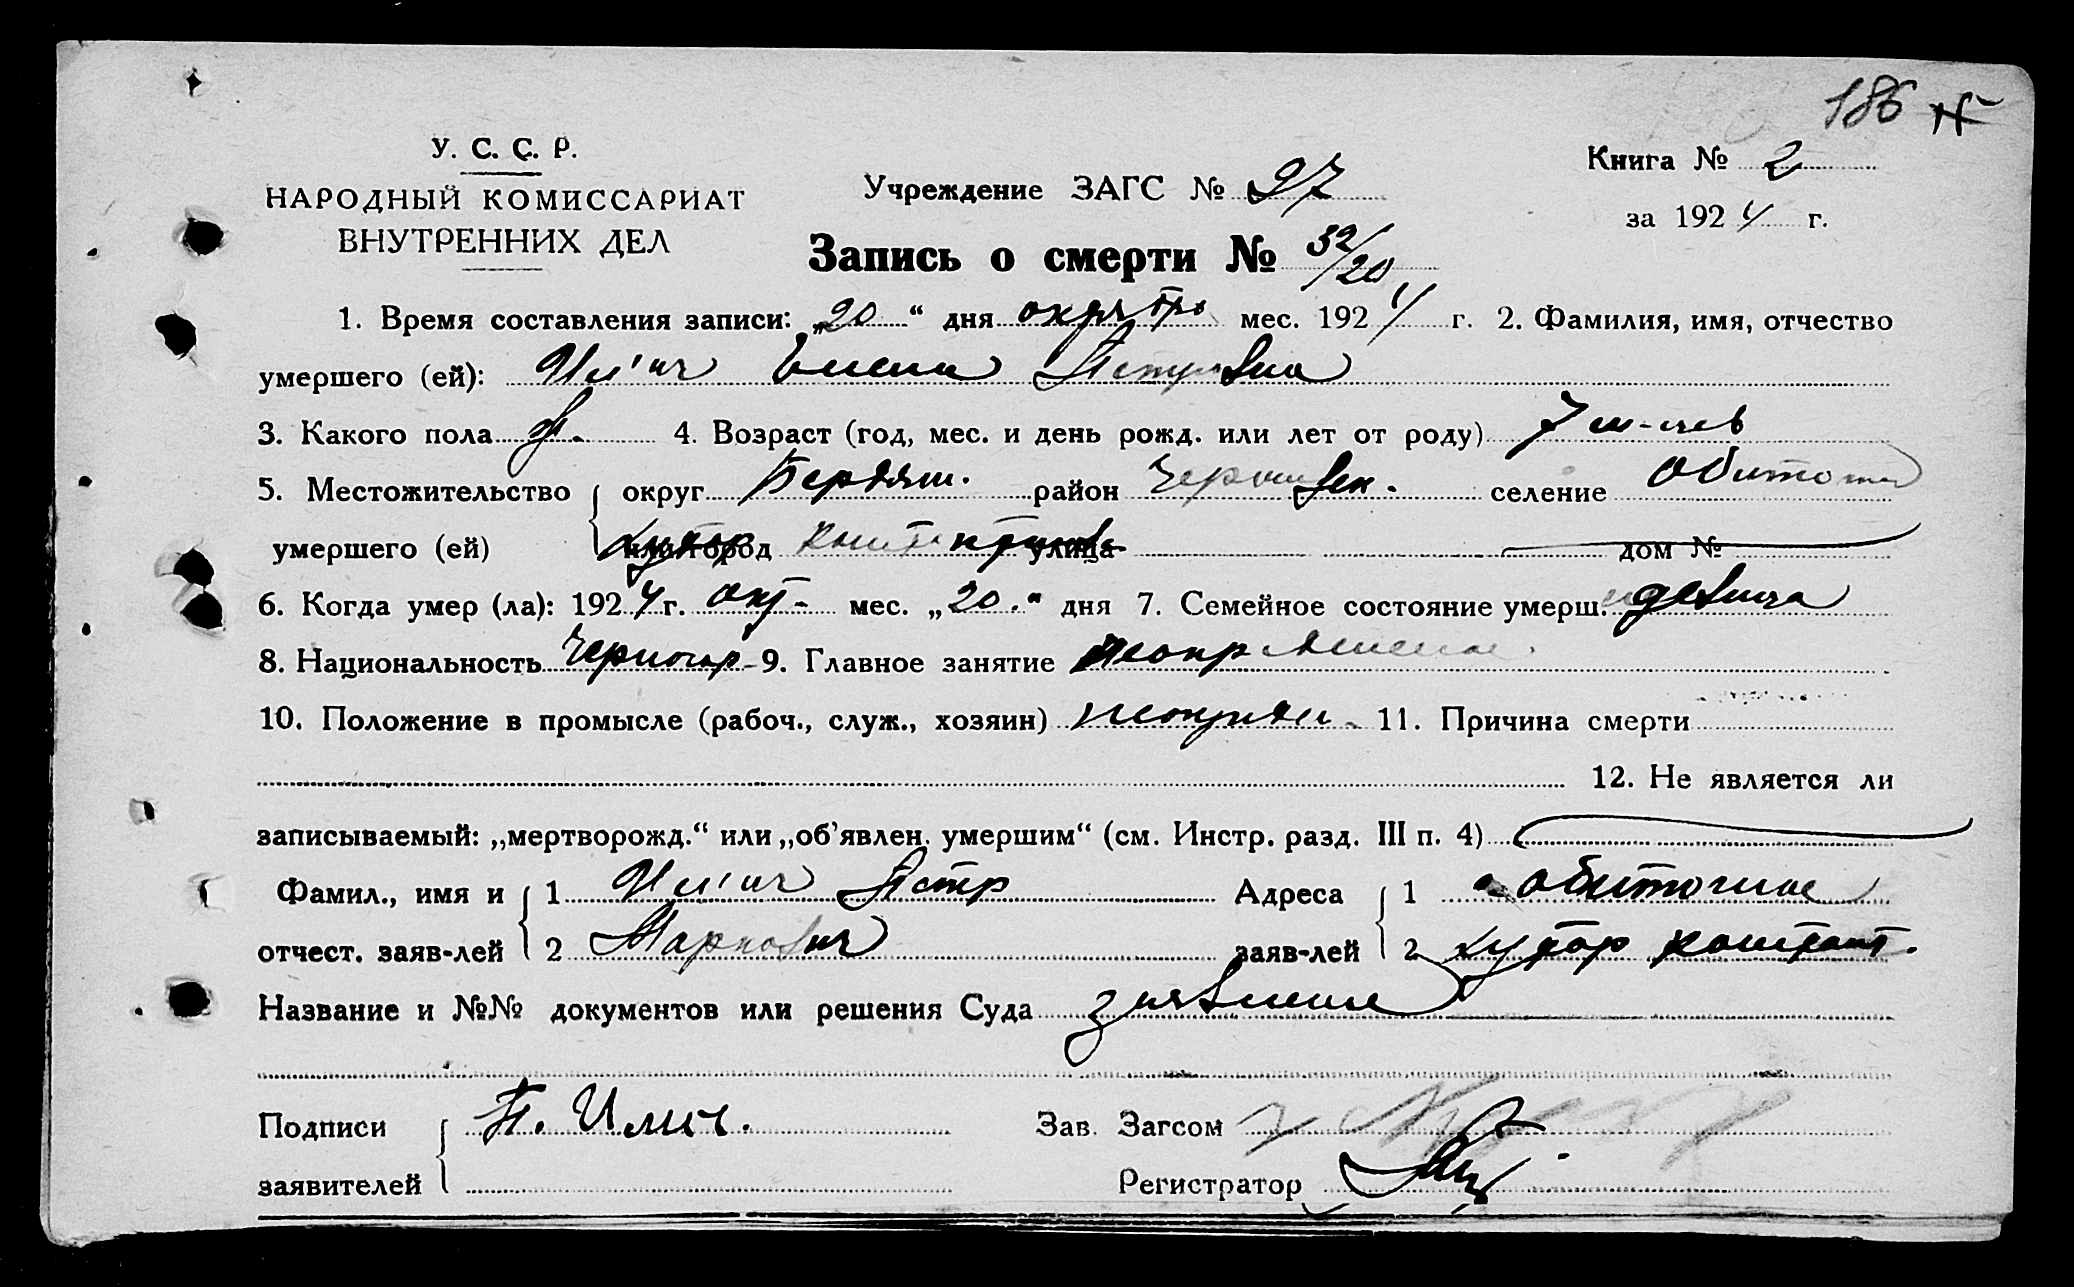 186 N
У. С. С. Р.
НАРОДНЫЙ КОМИССАРИАТ
ВНУТРЕННИХ ДЕЛ
Учреждение ЗАГС № 27
Книга № 2
за 1924 г.
Запись о смерти № 32/20
1. Время составления записи: „20“ дня октября мес. 1924 г. 2. Фамилия, имя, отчество
умершего (ей): Илич Елена Петровна
3. Какого пола ж. 4. Возраст (год, мес. и день рожд. или лет от роду) 7 м-цев
5. Местожительство округ Бердян. район Черниговск. селение Обиточная
умершего (ей) хутор город улица дом №
6. Когда умер (ла): 1924 г. окт- мес. „20.“ дня 7. Семейное состояние умерш. девица
8. Национальность Черногор 9. Главное занятие
10. Положение в промысле (рабоч., служ., хозяин) 11. Причина смерти
12. Не является ли
записываемый: „мертворожд.“ или „об’явлен. умершим“ (см. Инстр. разд. III п. 4)
Фамил., имя и 1 Илич Петр Адреса 1 Обиточное
отчест. заяв-лей 2 Маркович заяв-лей 2 хутор
Название и №№ документов или решения Суда заявление
Подписи П. Илич. Зав. Загсом
заявителей Регистратор